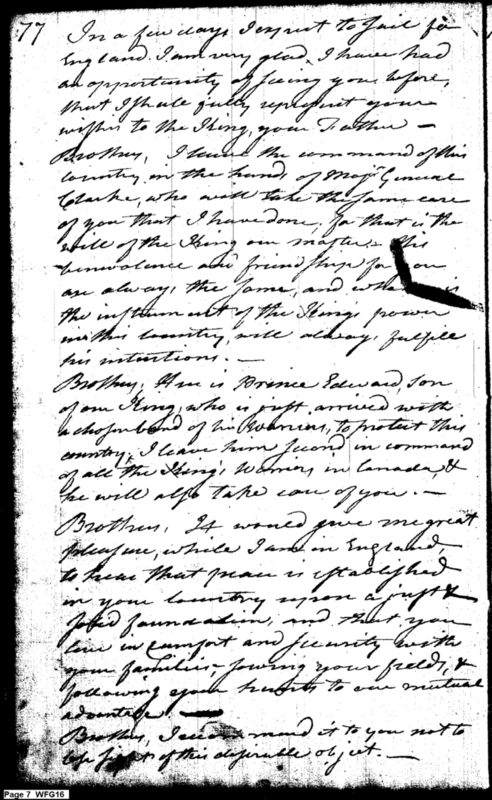 77
In a few days I expect to sail for
England. I am very glad, I have had
an opportunity of seeing you before,
that I shall fully represent your
wishes to the King, your Father —
Brothers, I leave the command of this
Country in the hands of Majr. General
Clarke, who will take the same care
of you that I have done, for that is the
will of the King our master. — His
benevolence and friendship for you
are always the same, and is
the instrument of the King's power
in this Country, will always fulfill
his intentions. —
Brothers, Here is Prince Edward, son
of our King, who is just arrived with
a chosen band of his Warriors, to protect this
country, I leave him second in command
of all the King's Warriors in Canada, &
he will also take care of you. —
Brothers, It would give me great
pleasure, while I am in England,
to hear that peace is established
in your Country upon a just &
solid foundation, and that you
live in comfort and security with
your families, sowing your fields, &
following your hunts to our mutual
advantage. —
Brothers, I recommend it to you not to
lose sight of this desirable object. —
Page 7 WFG16